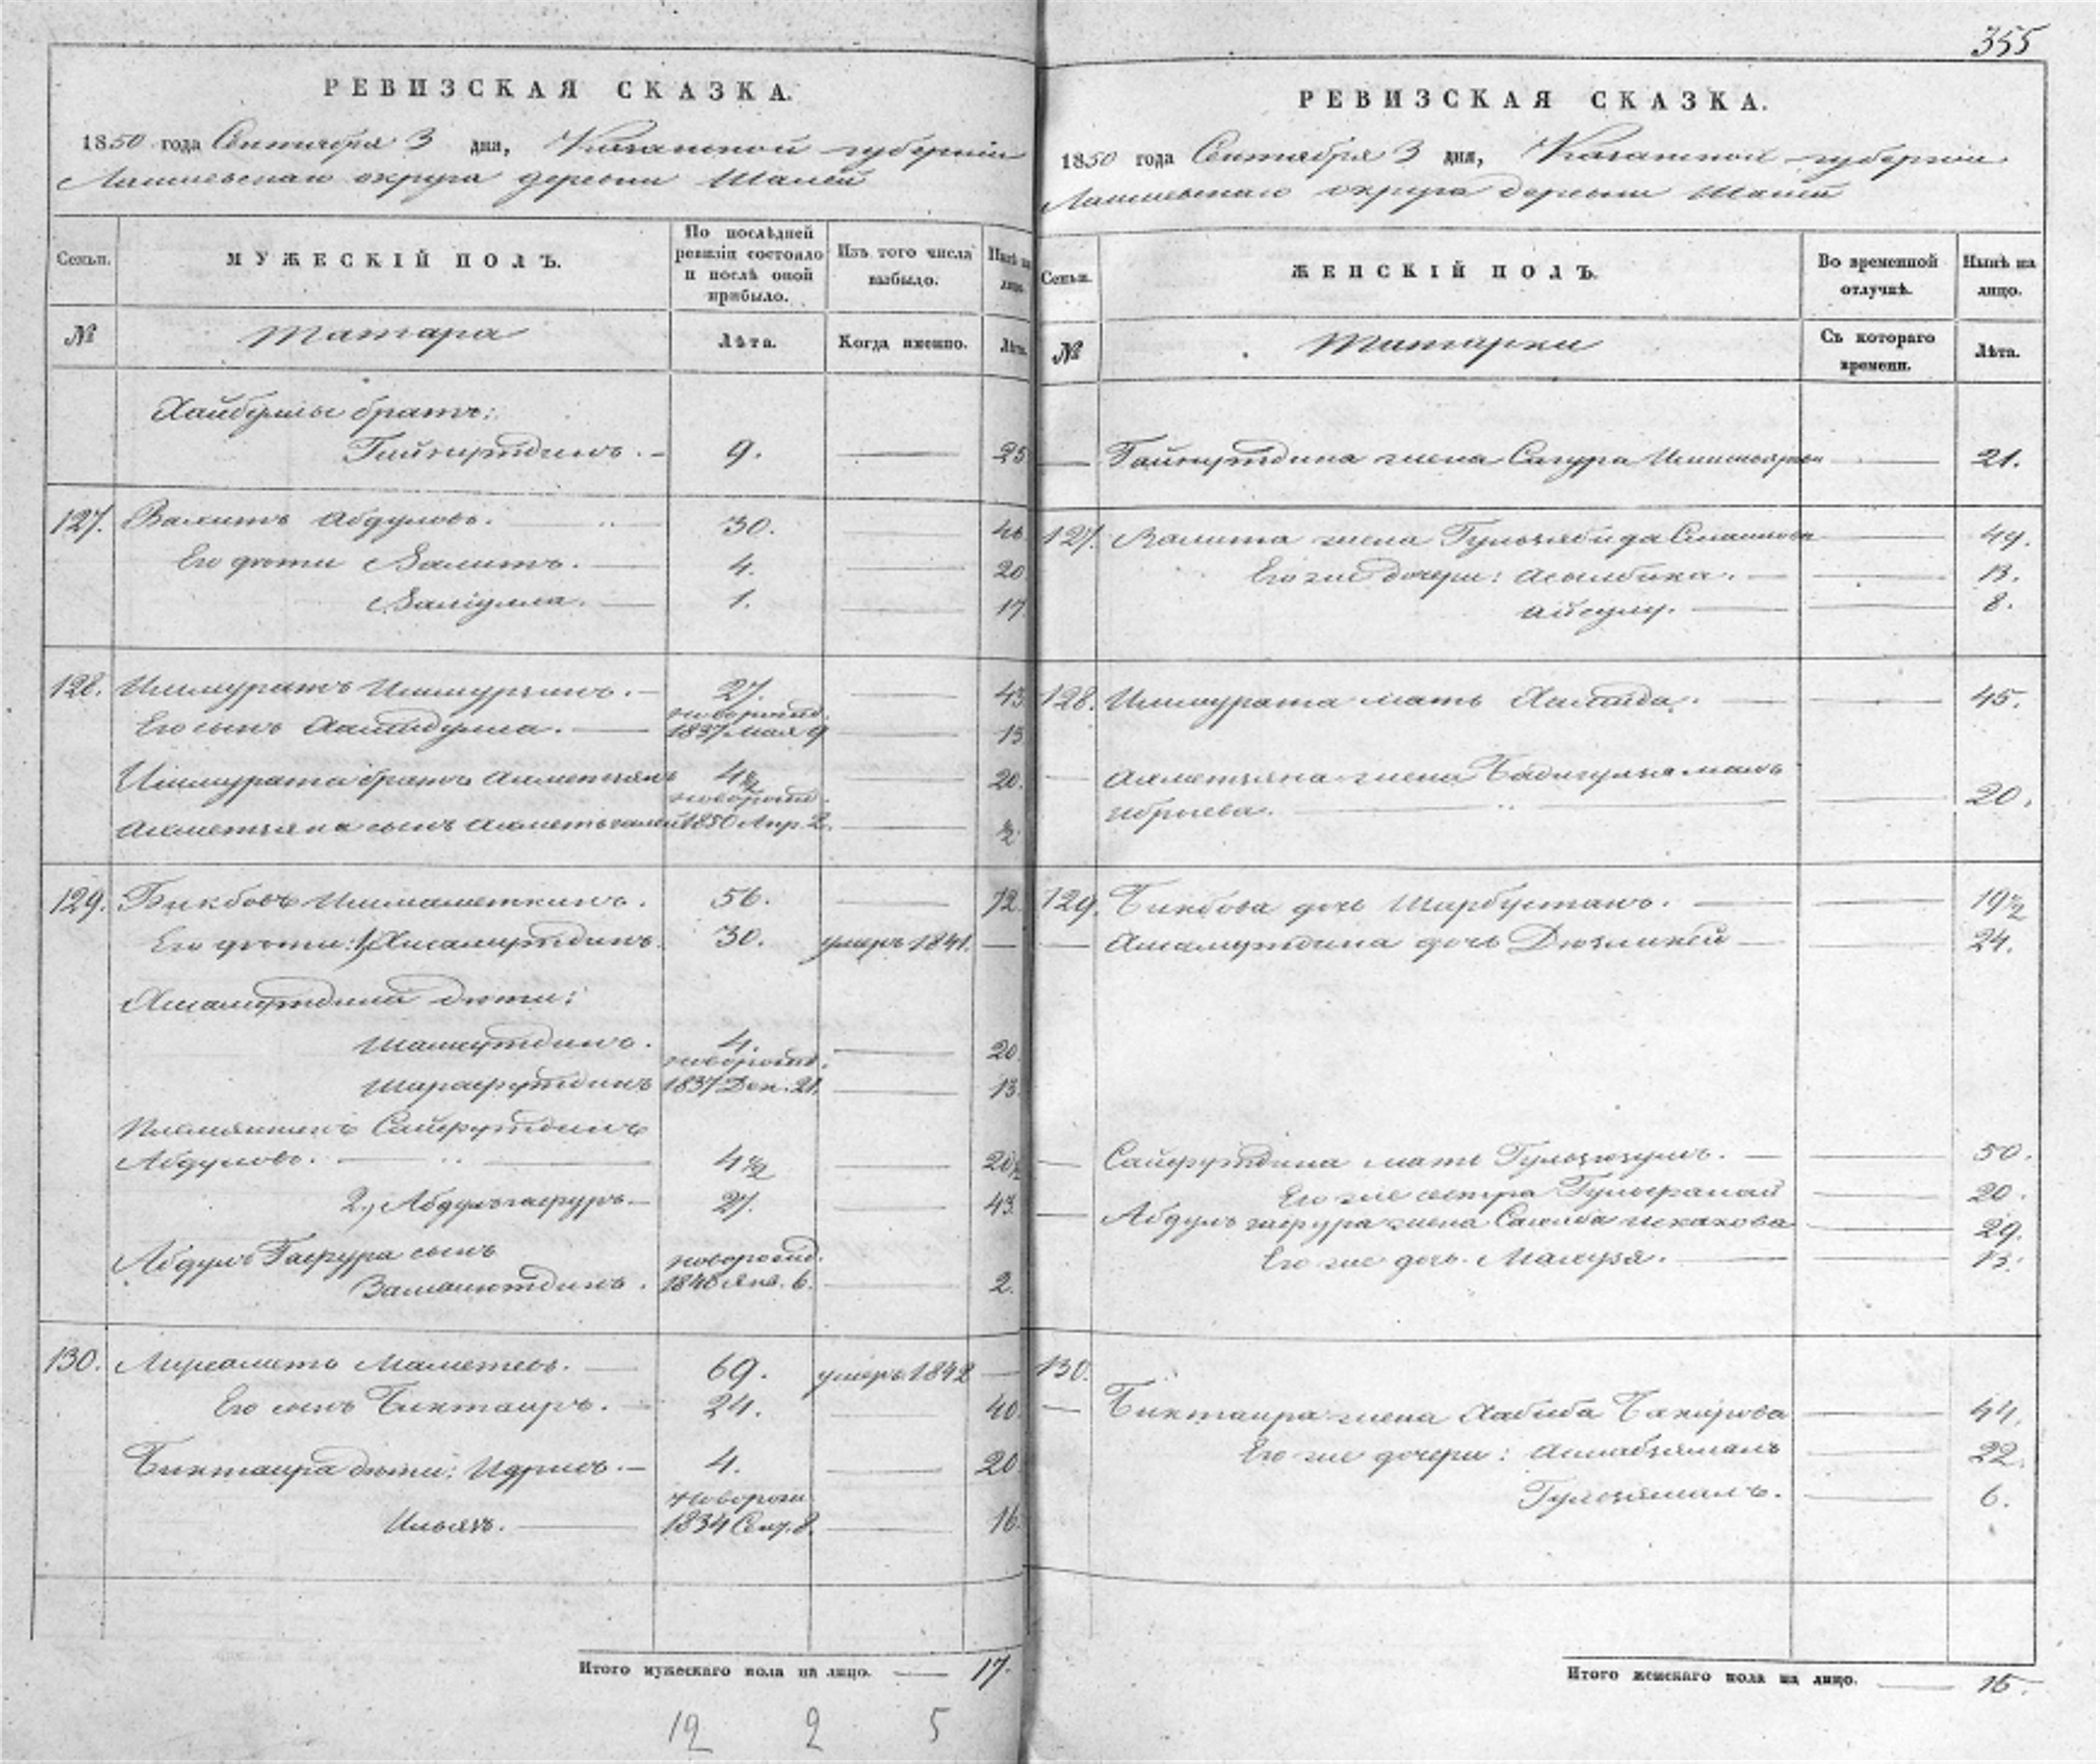 355
РЕВИЗСКАЯ СКАЗКА.
1850 года Сентября 3 дня, Казанской губернии
Лаишевскаго округа деревни Шалей
Семьи. МУЖЕСКІЙ ПОЛЪ. По послѣдней ревизіи состояло и послѣ оной прибыло. Изъ того числа выбыло. Нынѣ на лицо.
№ Татара Лѣта. Когда именно. Лѣта.
Хайбуллы братъ:
Гайнутдинъ. 9. 25
127. Валитъ Абдуловъ. 30. 46
Его дѣти 4. 20
1. 17
128. Ишмуратъ 27. 43
новорожд.
Его сынъ 1837 Мая 9 13
Ишмурата братъ Ахметзянъ 4½ 20.
новорожд.
Ахметзяна сынъ 1850 Апр. 2. ½
129. Бикбовъ Ишмаметкинъ. 56. 72
Его дѣти: 1, Хисамутдинъ. 30. умеръ 1841.
Хисамутдина дѣти:
4. 20
новорожд.
Шарафутдинъ 1837 Дек. 21. 13
Племянникъ Сайфутдинъ
Абдуловъ. 4½ 20½
2, Абдулъгафуръ 27. 43
Абдулъ Гафура сынъ новорожд.
Замалютдинъ. 1848 Янв. 6. 2.
130. Маметевъ. 69. умеръ 1842
Его сынъ Биктаиръ. 24. 40
Биктаира дѣти: Идрисъ. 4. 20
новорож.
Ильясъ. 1834 Сент. 8. 16
Итого мужескаго пола на лицо. 17.
12 2 5
РЕВИЗСКАЯ СКАЗКА.
1850 года Сентября 3 дня, Казанской губерніи
Лаишевскаго округа деревни Шалей
Семьи. ЖЕНСКІЙ ПОЛЪ. Во временной отлучкѣ. Нынѣ на лицо.
№ Татарки Съ котораго времени. Лѣта.
Гайнутдина жена Сагура 21.
127. Валита жена 49.
Его же дочери: Асылбика. 13.
Айсулу. 8.
128. Ишмурата мать 45.
Ахметзяна жена
20.
129. Бикбова дочь Шарбустанъ. 19½
Хисамутдина дочь 24.
Сайфутдина мать 50.
Его же сестра 20.
Абдулъ гафура жена Салиба Искакова 29.
Его же дочь 13.
130.
Биктаира жена Хабиба Бакирова 44.
Его же дочери: 22.
Гульзямалъ. 6.
Итого женскаго пола на лицо. 15.